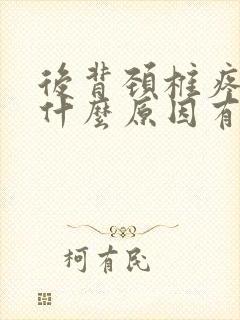 後背頸椎疼
什麼原因有
柯有民